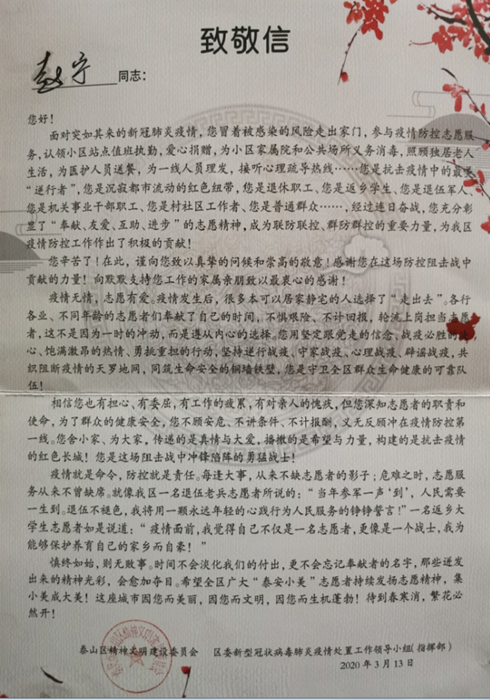 致敬信
赵宁 同志：
您好！
面对突如其来的新冠肺炎疫情，您冒着被感染的风险走出家门，参与疫情防控志愿服
务，认领小区站点值班执勤，爱心捐赠，为小区家属院和公共场所义务消毒，照顾独居老人
生活，为医护人员送餐，为一线人员理发，接听心理疏导热线……您是抗击疫情中的最美
“逆行者”，您是沉寂都市流动的红色纽带，您是退休职工、您是返乡学生、您是退伍军人、
您是机关事业干部职工、您是村社区工作者、您是普通群众……，经过连日奋战，您充分彰
显了“奉献、友爱、互助、进步”的志愿精神，成为联防联控、群防群控的重要力量，为我区
疫情防控工作作出了积极的贡献！
您辛苦了！在此，谨向您致以真挚的问候和崇高的敬意！感谢您在这场防控阻击战中
贡献的力量！向默默支持您工作的家属亲朋致以最衷心的感谢！
疫情无情，志愿有爱。疫情发生后，很多本可以居家静宅的人选择了“走出去”。各行
各业、不同年龄的志愿者们奉献了自己的时间，不惧艰险、不计回报，轮流上岗担当志愿
者，这不是因为一时的冲动，而是遵从内心的选择。您用坚定跟党走的信念、战疫必胜的
心、饱满激昂的热情、勇挑重担的行动，坚持逆行战疫、守家战疫、心理战疫、辟谣战疫，共
织阻断疫情的天罗地网，同筑生命安全的铜墙铁壁，您是守卫全区群众生命健康的可靠队
伍！
相信您也有担心、有委屈，有工作的疲累，有对亲人的愧疚，但您深知志愿者的职责和
使命，为了群众的健康安全，您不顾安危、不讲条件、不计报酬，义无反顾冲在疫情防控第
一线。您舍小家、为大家，传递的是真情与大爱，播撒的是希望与力量，构建的是抗击疫情
的红色长城！您是这场阻击战中冲锋陷阵的勇猛战士！
疫情就是命令，防控就是责任。每逢大事，从来不缺志愿者的影子；危难之时，志愿服
务从来不曾缺席。就像我区一名退伍老兵志愿者所说的：“当年参军一声‘到’，人民需要
一生到。退伍不褪色，我将用一颗永远年轻的心践行为人民服务的铮铮誓言！”一名返乡大
学生志愿者如是说道：“疫情面前，我觉得自己不仅是一名志愿者，更像是一个战士，我为
能够保护养育自己的家乡而自豪！”
慎终如始，则无败事。时间不会淡化我们的付出，更不会忘记奉献者的名字，那些迸发
出来的精神光彩，会愈加夺目。希望全区广大“泰安小美”志愿者持续发扬志愿精神，集
小美成大美！这座城市因您而美丽，因您而文明，因您而生机蓬勃！待到春寒消，繁花必
然开！
泰山区精神文明建设委员会 区委新型冠状病毒肺炎疫情处置工作领导小组（指挥部）
2020年3月13日